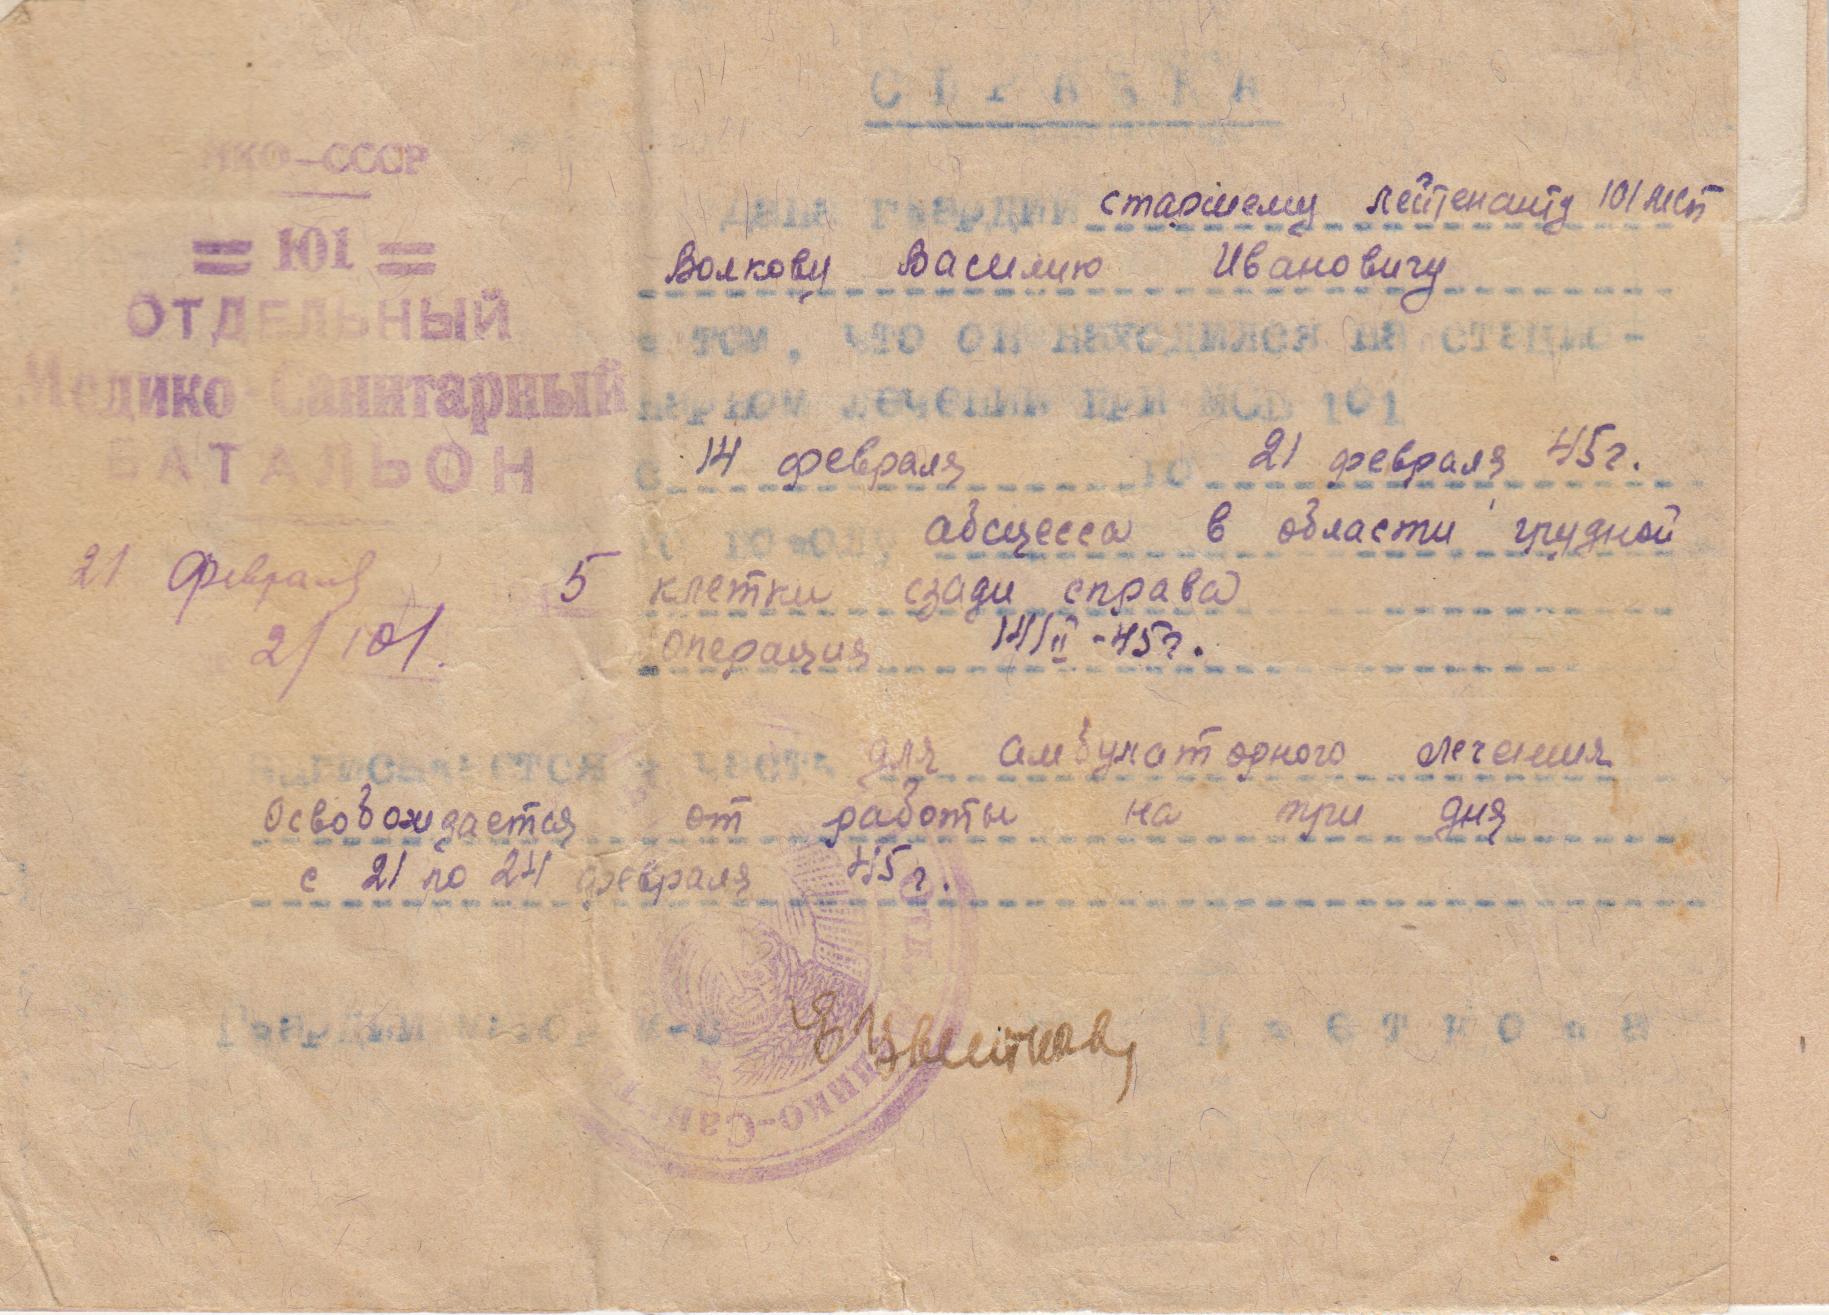 СПРАВКА
НКО-СССР
101
ОТДЕЛЬНЫЙ
Медико-Санитарный
БАТАЛЬОН
21 февраля 5
2/101.
дана гвардии старшему лейтенанту 101 мсп
Волкову Василию Ивановичу
в том, что он находился на стацио-
нарном лечении при МСБ 101
с 14 февраля по 21 февраля 45г.
абсцесса в области грудной
клетки сзади справа
операция 14/II-45г.
Выписывается в часть для амбулаторного лечения
Освобождается от работы на три дня
с 21 по 24 февраля 45г.
Гвардии майор м-с Цветкова
Отд. Медико-Санит